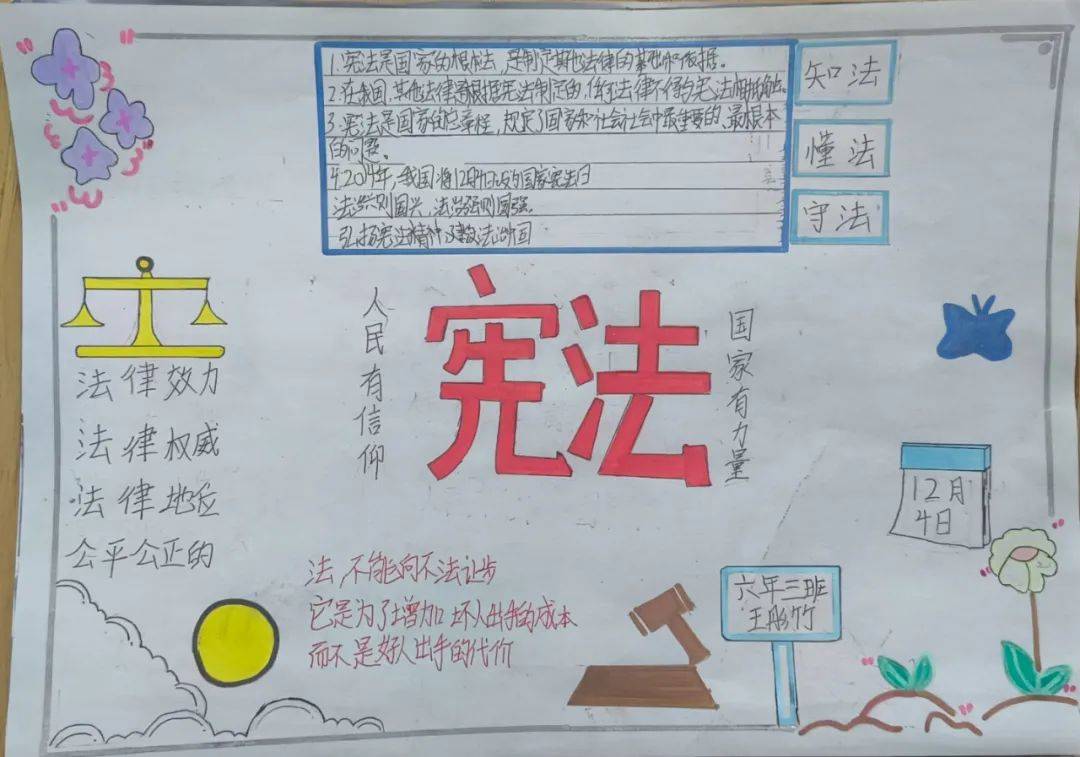 1.宪法是国家的根本法，是制定其他法律的基础和依据。
2.在我国，其他法律是根据宪法制定的，任何法律不得与宪法相抵触。
3.宪法是国家的总章程，规定了国家和社会生活中最重要的、最根本
的问题。
4.2014年，我国将12月4日设为国家宪法日
法治兴则国兴，法治强则国强。
弘扬宪法精神 建设法治中国
知法
懂法
守法
人民有信仰
宪法
国家有力量
法律效力
法律权威
法律地位
公平公正的
12月
4日
法,不能向不法让步
它是为了增加坏人出手的成本
而不是好人出手的代价
六年三班
王彤竹